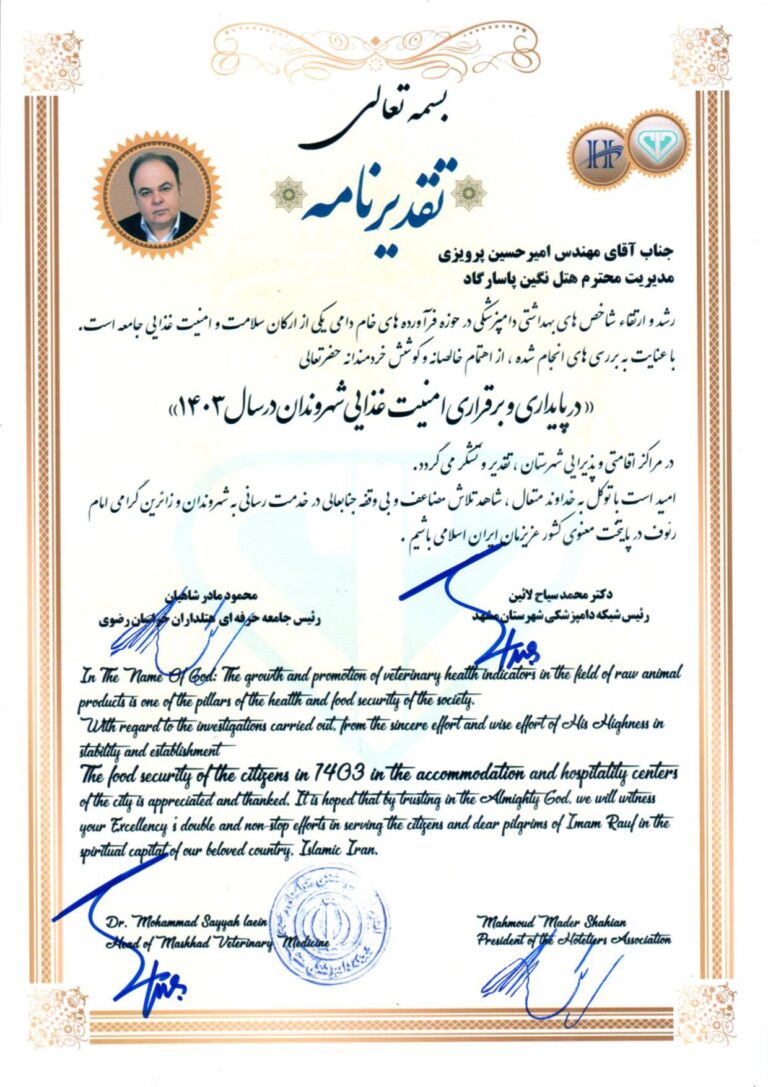 بسمه تعالی
تقدیرنامه
جناب آقای مهندس امیرحسین پرویزی
مدیریت محترم هتل نگین پاسارگاد
رشد و ارتقاء شاخص های بهداشتی دامپزشکی در حوزه فرآورده های خام دامی یکی از ارکان سلامت و امنیت غذایی جامعه است.
با عنایت به بررسی های انجام شده ، از اهتمام خالصانه و کوشش خردمندانه حضرتعالی
«در پایداری و برقراری امنیت غذایی شهروندان در سال ۱۴۰۳»
در مراکز اقامتی و پذیرایی شهرستان ، تقدیر و تشکر می گردد.
امید است با توکل به خداوند متعال ، شاهد تلاش مضاعف و بی وقفه جنابعالی در خدمت رسانی به شهروندان و زائرین گرامی امام
رئوف در پایتخت معنوی کشور عزیزمان ایران اسلامی باشیم .
دکتر محمد سیاح لائین
رئیس شبکه دامپزشکی شهرستان مشهد
محمود مادرشاهیان
رئیس جامعه حرفه ای هتلداران خراسان رضوی
In The Name Of God: The growth and promotion of veterinary health indicators in the field of raw animal
products is one of the pillars of the health and food security of the society.
With regard to the investigations carried out, from the sincere effort and wise effort of His Highness in
stability and establishment
The food security of the citizens in 1403 in the accommodation and hospitality centers
of the city is appreciated and thanked. It is hoped that by trusting in the Almighty God, we will witness
your Excellency's double and non-stop efforts in serving the citizens and dear pilgrims of Imam Rauf in the
spiritual capital of our beloved country, Islamic Iran.
Dr. Mohammad Sayyah laein
Head of Mashhad Veterinary Medicine
Mahmoud Mader Shahian
President of the Hoteliers Association